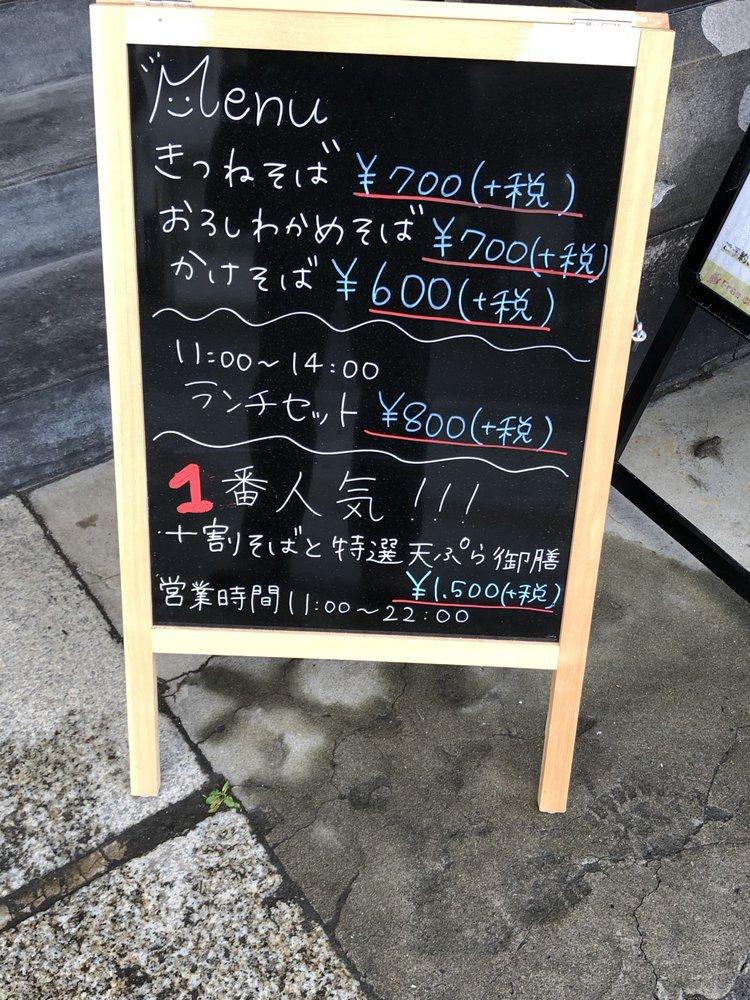 Menu
きつねそば ¥700(+税)
おろしわかめそば ¥700(+税)
かけそば ¥600(+税)
11:00~14:00
ランチセット ¥800(+税)
1番人気!!!
十割そばと特選天ぷら御膳
¥1.500(+税)
営業時間11:00~22:00